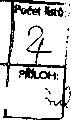 Počet listů:
2
PŘÍLOH: